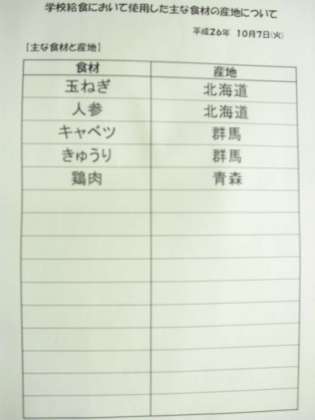 学校給食において使用した主な食材の産地について
平成26年 10月7日(火)
[主な食材と産地]
食材 産地
玉ねぎ 北海道
人参 北海道
キャベツ 群馬
きゅうり 群馬
鶏肉 青森